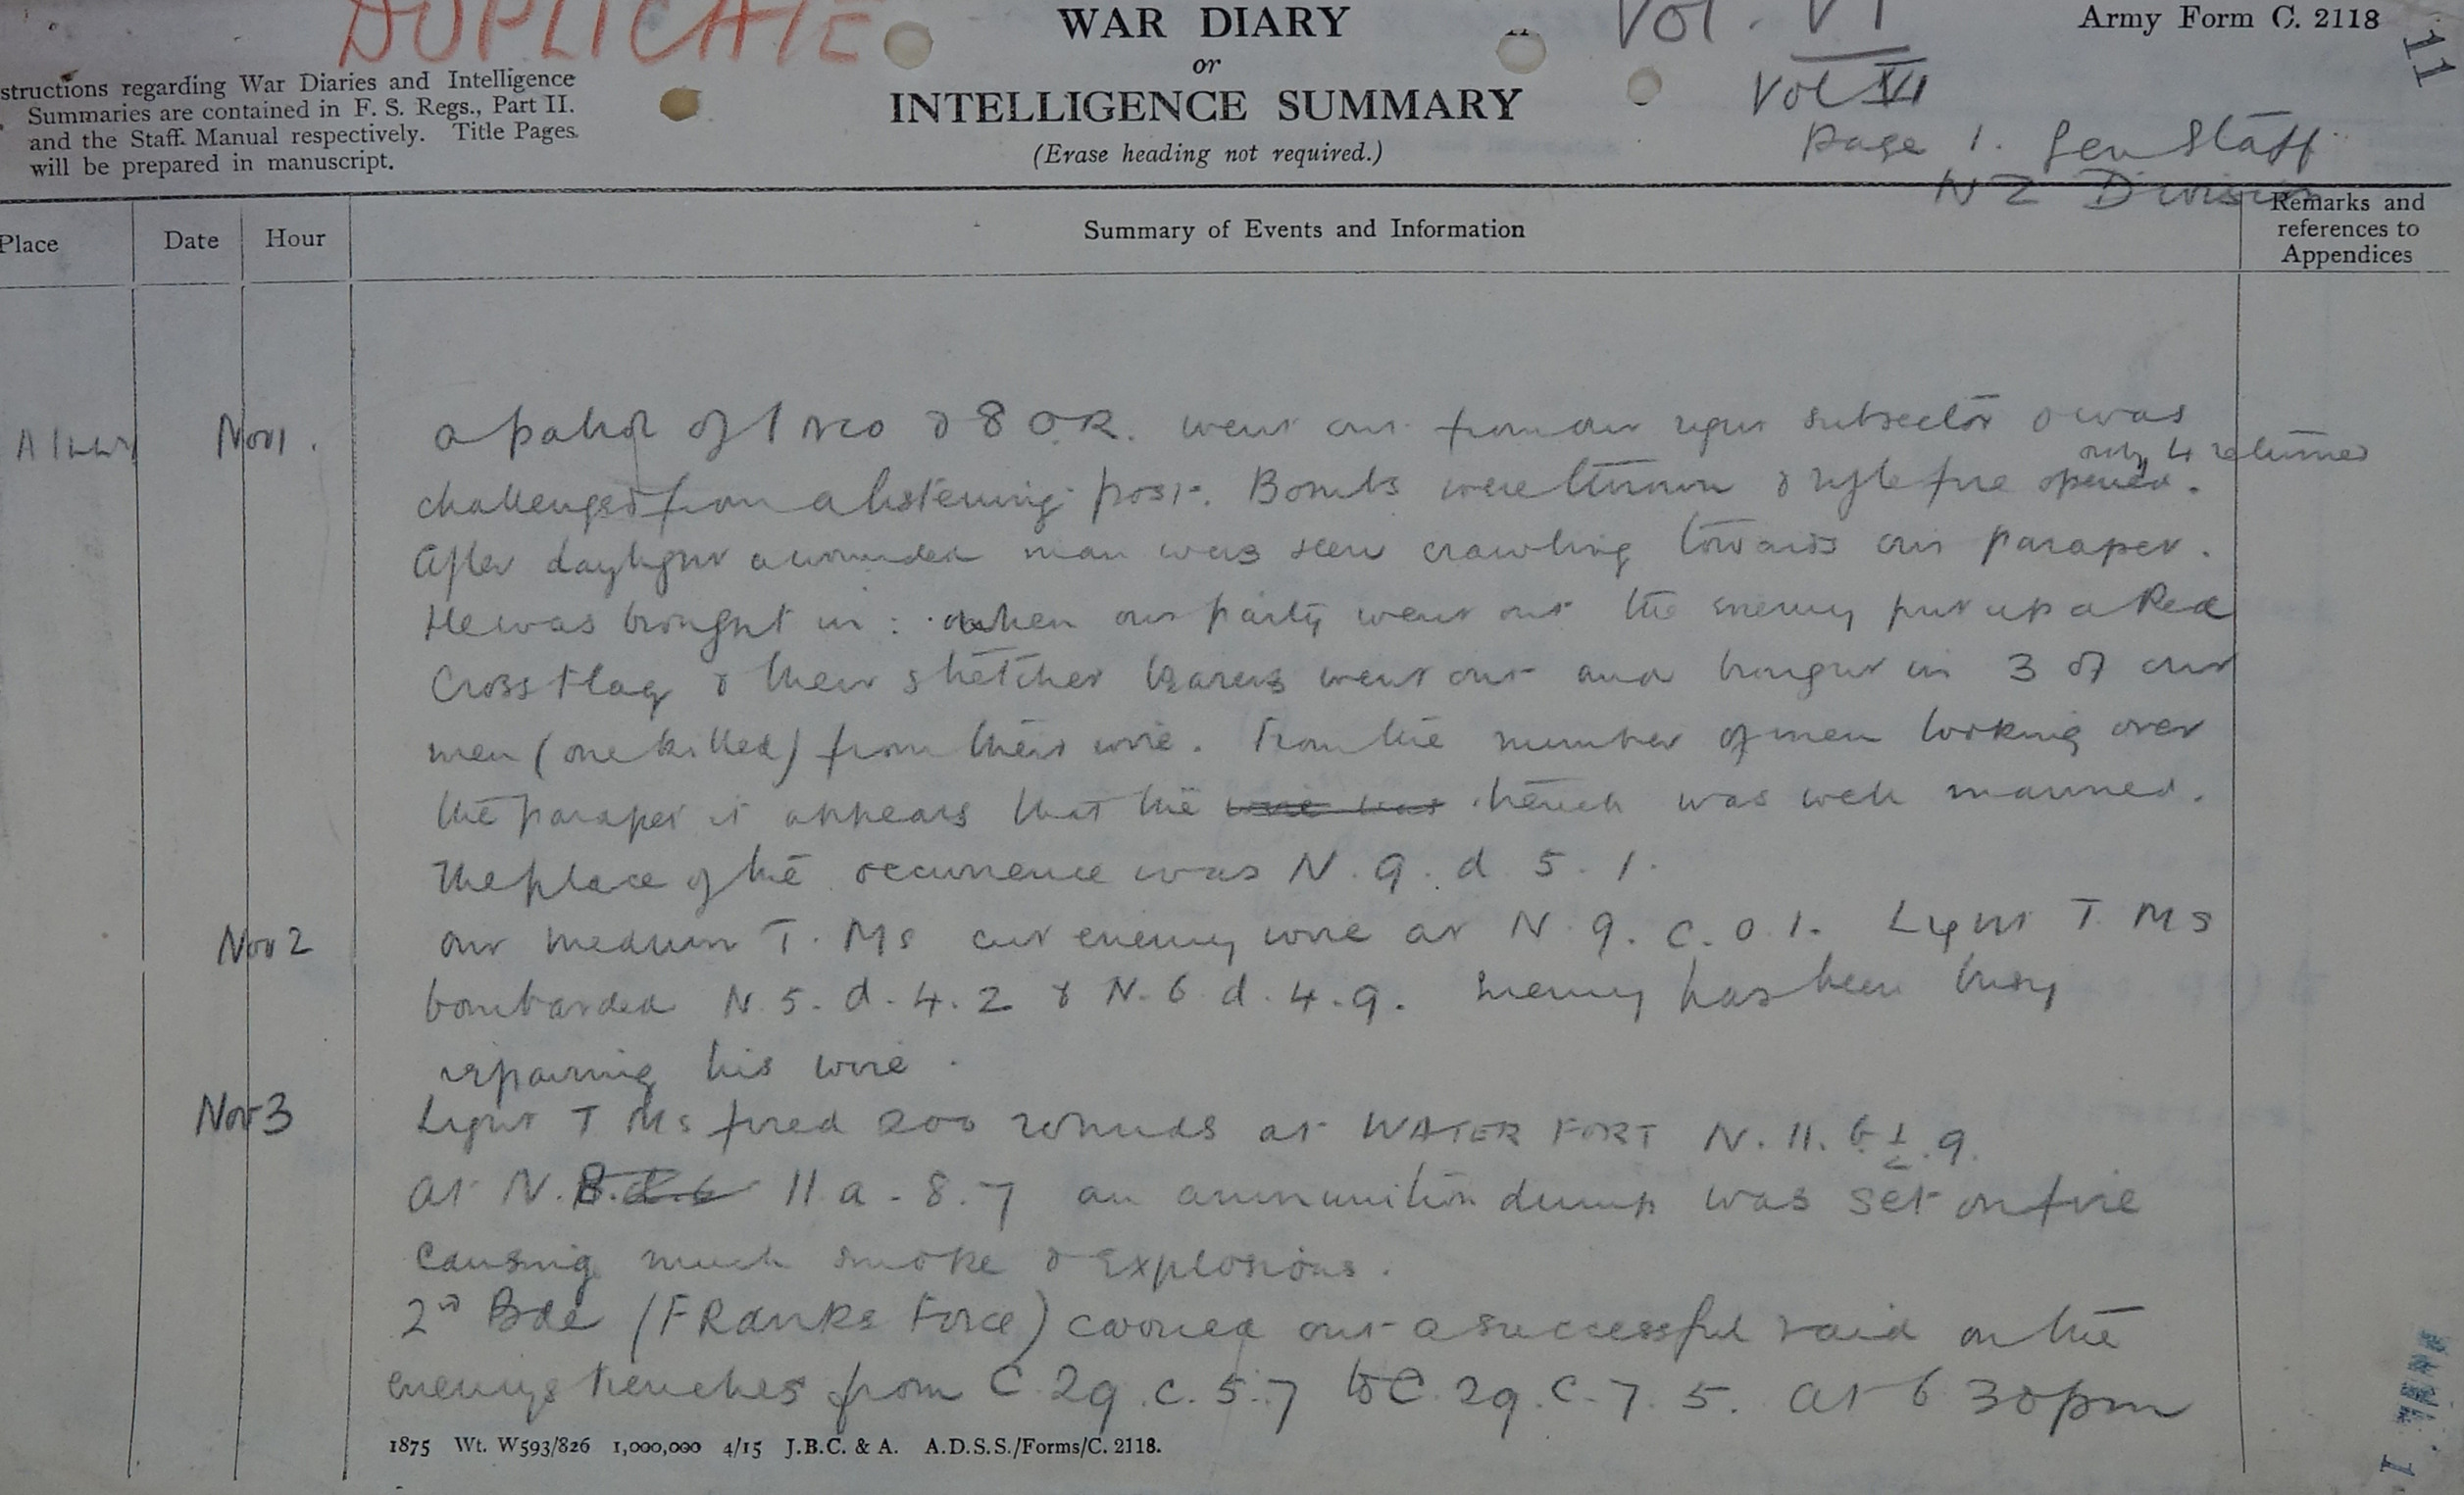 DUPLICATE
WAR DIARY
or
INTELLIGENCE SUMMARY
(Erase heading not required.)
Vol. VI
Vol VI
Page 1. Gen Staff
NZ Division
Army Form C. 2118
11
structions regarding War Diaries and Intelligence
Summaries are contained in F. S. Regs., Part II.
and the Staff Manual respectively. Title Pages
will be prepared in manuscript.
Place Date Hour Summary of Events and Information Remarks and references to Appendices
Nov 1. a patrol of 1 NCO & 8 O.R. went out from our right subsector & was
only 4 returned
challenged from a listening post. Bombs were thrown & rifle fire opened.
After daylight a wounded man was seen crawling towards our parapet.
He was brought in: when our party went out the enemy put up a Red
Cross flag & their stretcher bearers went out and brought in 3 of our
men (one killed) from their wire. From the number of men looking over
the parapet it appears that the wire was trench was well manned.
The place of the occurrence was N. 9. d. 5. 1.
Nov 2 our medium T. Ms cut enemy wire at N. 9. c. 0. 1. Light T. Ms
bombarded N. 5. d. 4. 2 & N. 6 d. 4. 9. Enemy has been busy
repairing his wire.
Nov 3 Light T Ms fired 200 rounds at WATER FORT N. 11. b ½. 9.
at N. 11 a. 8. 7 an ammunition dump was set on fire
causing much smoke & explosions.
2nd Bde (FRanks Force) carried out a successful raid on the
enemys trenches from C. 29. c. 5. 7 to C. 29. c. 7. 5. at 6 30pm
1875 Wt. W593/826 1,000,000 4/15 J.B.C. & A. A.D.S.S./Forms/C. 2118.